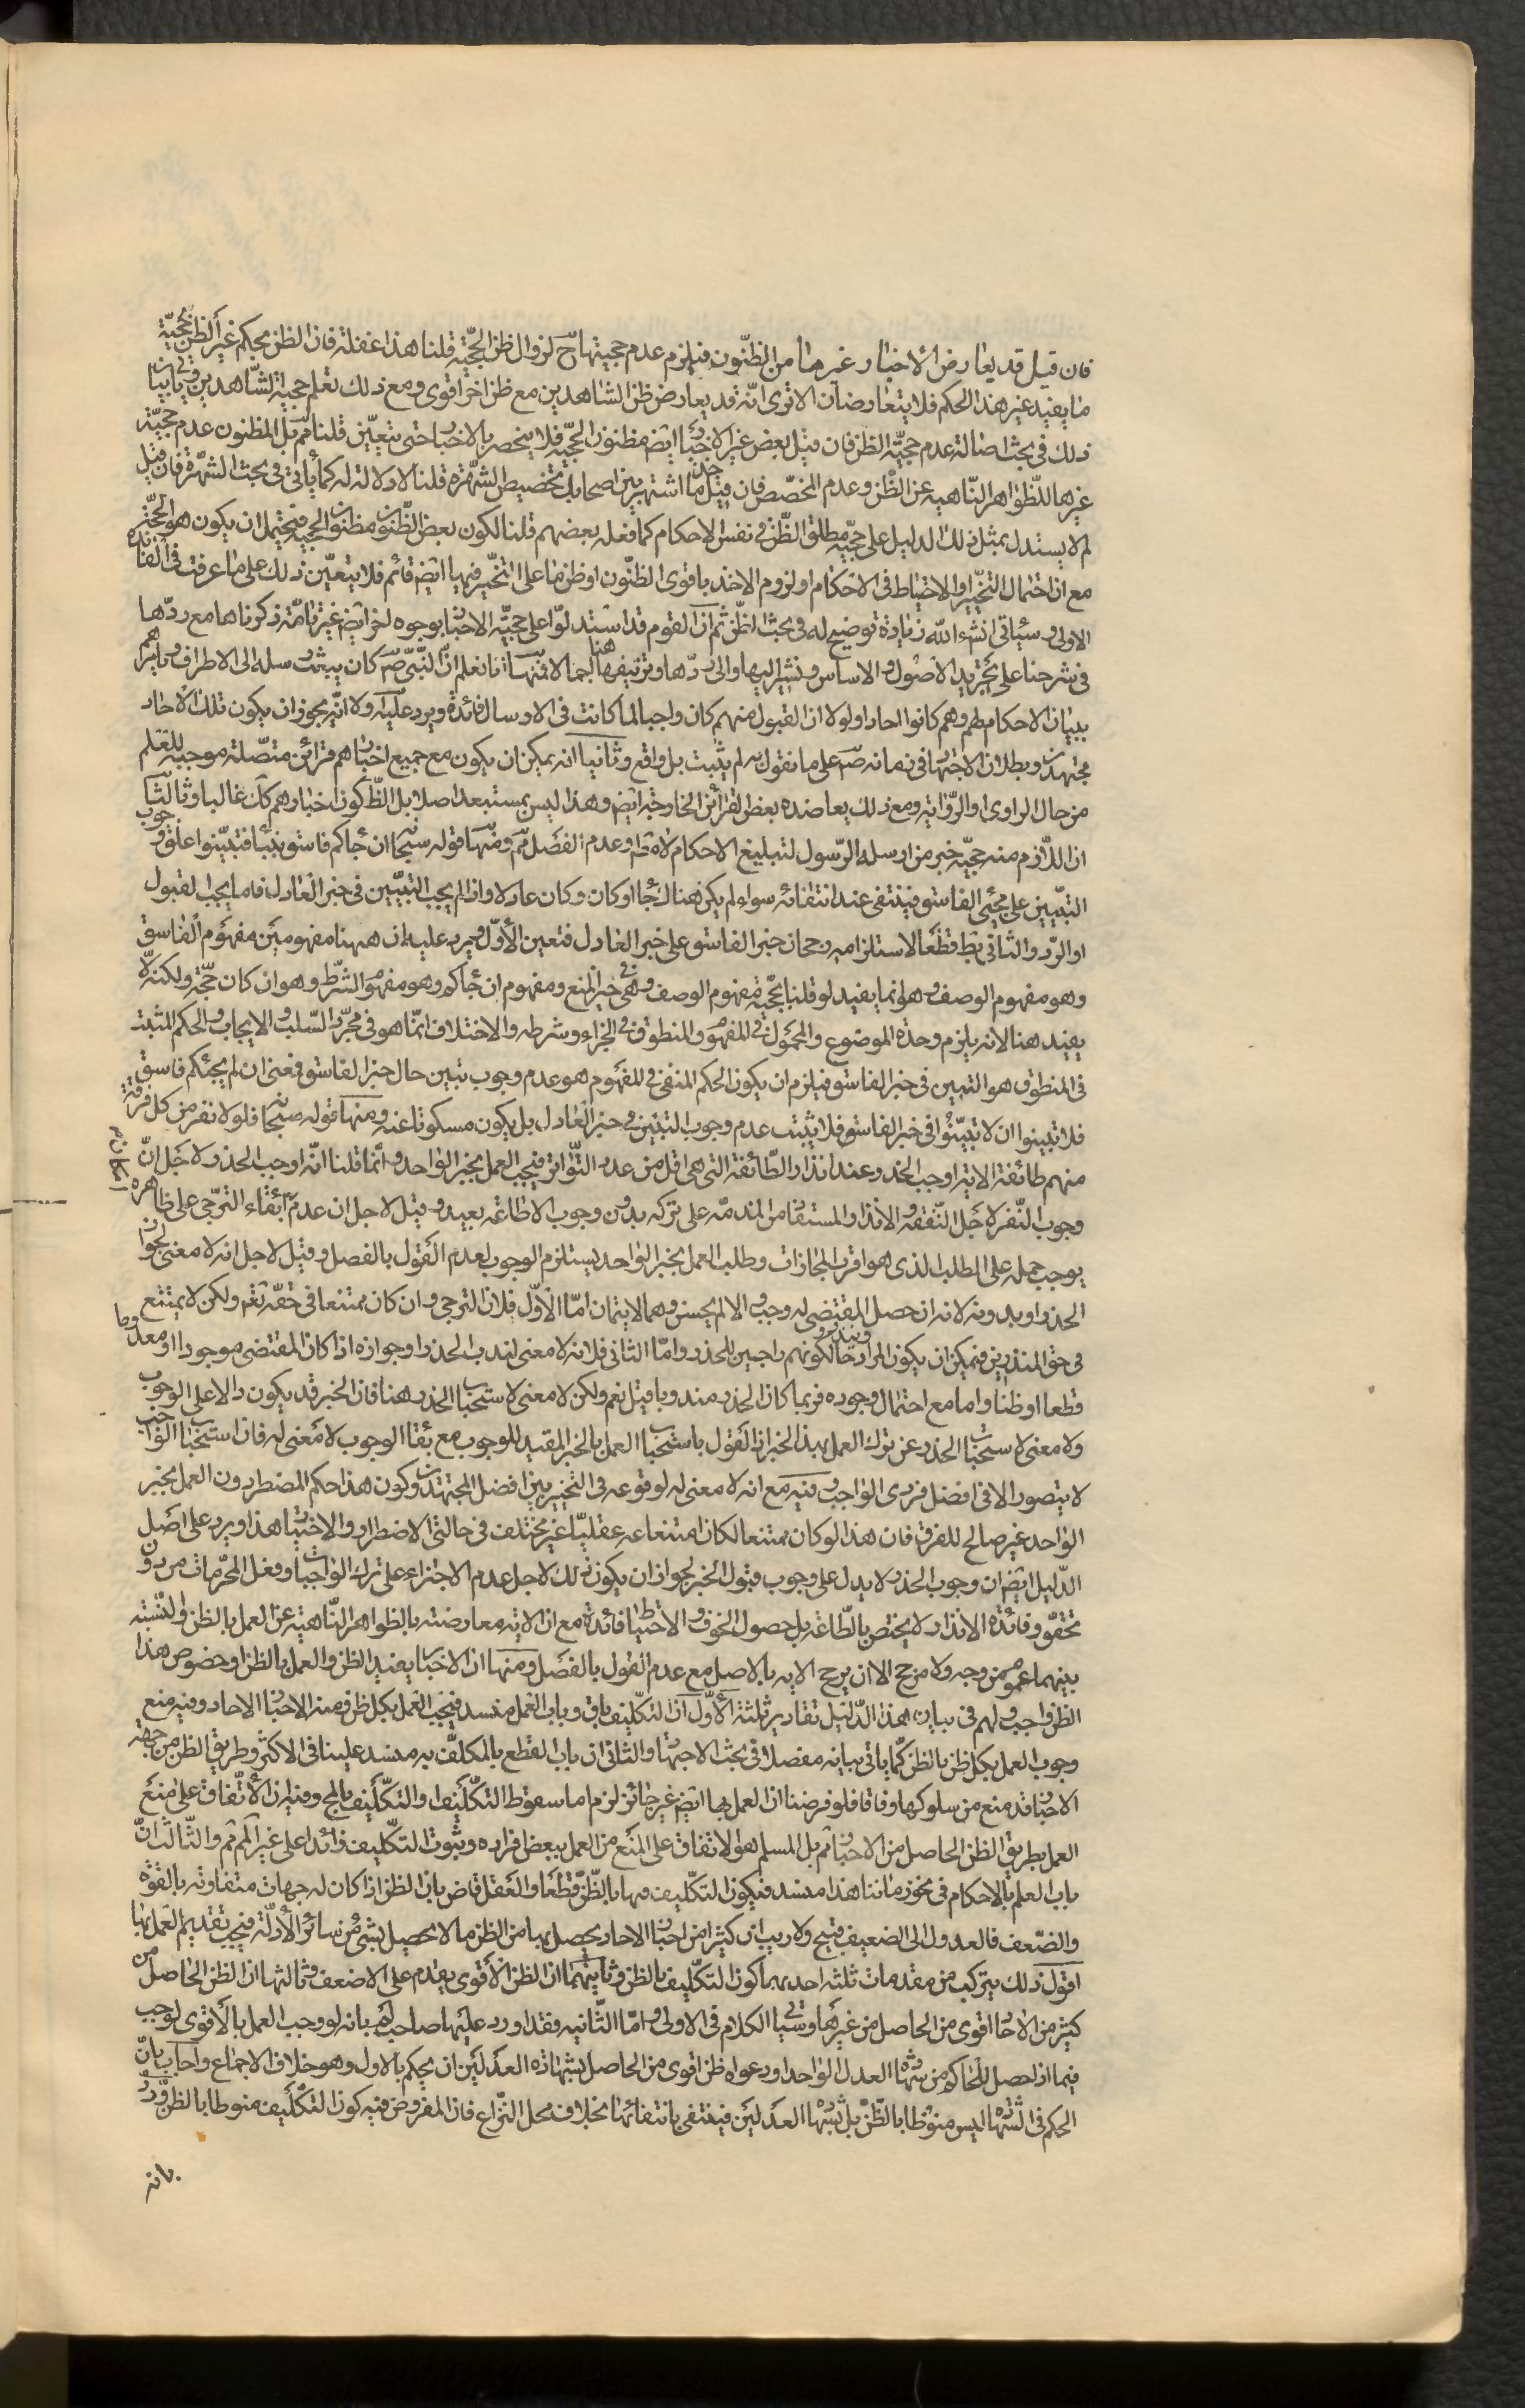 فان قيل قد يعارض الأخبار وغيرها من الظنون فيلزم عدم حجيتها ح لزوال ظن الحجّية قلنا هذا غفلة فان الظن بحكم غير الظن بحجيّة
ما يفيد غير هذا الحكم فلا يتعارضان الا ترى انّه قد يعارض ظن الشاهدين مع ظن اخر اقوى ومع ذلك نعلم حجية الشاهدين وياتي بيان
ذلك في بحث اصالة عدم حجيّة الظن فان قيل بعض غير الاخبار ايض مظنون الحجّية فلا ينحصر بالاخبار حتى يتعيّن قلنا مم بل المظنون عدم حجيّة
غيرها للظواهر النّاهية عن الظّن وعدم المخصّص فان قيل ما اشتهر بين اصحابك تخصيص الشهرة قلنا لا دلالة له كما ياتي في بحث الشهرة فان قيل
لم لا يستدل بمثل ذلك الدليل على حجيّة مطلق الظّن في نفس الاحكام كما فعله بعضهم قلنا لكون بعض الظّنون مظنون الحجية فيحتمل ان يكون هو الحجّة
مع ان احتمال التخيير والاحتياط في الاحكام او لزوم الاخذ باقوى الظنّون او ظن ما على التخيير فيها ايض قائم فلا يتعيّن ذلك على ما عرفت في الفائدة
الاولى وسيأتي انشاء الله زيادة توضيح له في بحث الظّن ثم ان القوم قد استدلوا على حجيّة الاخبار بوجوه اخر ايض غير تامّة ذكرناها مع ردّها
في شرحنا على تجريد الاصول والاساس ونشير اليها والى ردّها وتزييفها هنا اجمالا فمنها انا نعلم انّ النّبي ص كان يبعث رسله الى الاطراف ويامرهم
ببيان الاحكام لهم وهم كانوا احادا ولولا ان القبول منهم كان واجبا لما كانت في الارسال فائدة ويرد عليه اولا انّه يجوز ان يكون تلك الاحاد
مجتهدين وبطلان الاجتهاد في زمانه ص على ما نقول به لم يثبت بل واقع وثانيا انه يمكن ان يكون مع جميع اخبارهم قرائن متصلة موجبة للعلم
من حال الراوى او الرّواية ومع ذلك يعاضده بعض القرائن الخارجية ايض وهذا ليس بمستبعد اصلا بل الظ كون اخبارهم كك غالبا وثالثا
ان اللّازم منه حجيّة خبر من ارسله الرّسول لتبليغ الاحكام لا مط وعدم الفصل مم ومنها قوله سبحانه ان جاءكم فاسق بنبأ فتبيّنوا علق وجوب
التبيّين على مجئي الفاسق فينتفى عند انتفائه سواء لم يكن هناك جاء او كان وكان عادلا واذا لم يجب التبيّين في خبر العادل فاما يجب القبول
او الرّد والثاني بط قطعا لاستلزامه رجحان خبر الفاسق على خبر العادل فتعين الأوّل ويرد عليه ان ههنا مفهومين مفهوم الفاسق
وهو مفهوم الوصف وهو انما يفيد لو قلنا بحجّية مفهوم الوصف وهى في خبر المنع ومفهوم ان جاءكم وهو مفهوم الشّرط وهو ان كان حجّة ولكنه لا
يفيد هنا لانه يلزم وحدة الموضوع والمحمول في المفهوم والمنطوق في الجزاء وشرطه والاختلاف انّما هو في مجرّد السّلب والايجاب والحكم المثبت
في المنطوق هو التبين في خبر الفاسق فيلزم ان يكون الحكم المنفى في المفهوم هو عدم وجوب تبين حال خبر الفاسق فمعنى ان لم يجئكم فاسق
فلا تبينوا ان لا تبيّنوا في خبر الفاسق فلا يثبت عدم وجوب التبيّن في خبر العادل بل يكون مسكوتا عنه ومنها قوله سبحانه فلولا نفر من كل فرقة
منهم طائفة الاية اوجب الحذر عند انذار الطّائفة التي هي اقل من عدد التّواتر فيجب العمل بخبر الواحد وانّما قلنا انّه اوجب الحذر لاجل انّ
وجوب النّفر لاجل التّفقه والانذار والمستفاد من المذمّة على تركه بدون وجوب الاطاعة بعيد وقيل لاجل ان عدم امكان ابقاء الترجّي على ظاهره
يوجب حمله على الطلب الذى هو اقرب المجازات وطلب العمل بخبر الواحد يستلزم الوجوب لعدم القول بالفصل وقيل لاجل انه لا معنى لجواز
الحذر او بدونه لانه ان حصل المقتضى له وجب والا لم يحسن وهما لا يتمان امّا الاوّل فلان الترجي وان كان ممتنعا في حقّه تعم ولكن لا يمتنع
في حق المنذرين فيمكن ان يكون المراد وينذروا حالكونهم راجين للحذر وامّا الثاني فلانه لا معنى لندب الحذر او جوازه اذا كان المقتضى موجودا او معدوما
قطعا او ظنا واما مع احتمال وجوده فربما كان الحذر مندوبا قيل نعم ولكن لا معنى لاستحباب الحذر هنا فان الخبر قد يكون دالا على الوجوب
ولا معنى لاستحباب الحذر عن ترك العمل بهذا الخبر اذ القول باستحباب العمل بالخبر المفيد للوجوب مع بقاء الوجوب لا معنى له فان استحباب الواجب
لا يتصور الا في افضل فردى الواجب وفيه مع انه لا معنى له لوقوعه في التخيير بين افضل المجتهدين وكون هذا حكم المضطر دون العمل بخبر
الواحد غير صالح للفرق فان هذا لو كان ممتنعا لكان امتناعه عقليّا غير مختلف في حالتي الاضطرار والاختيار هذا ويرد على اصل
الدّليل ايض ان وجوب الحذر لا يدل على وجوب قبول الخبر لجواز ان يكون ذلك لاجل عدم الاجتزاء على ترك الواجبات وفعل المحرّمات من دون
تحقق وفائدة الانذار لا يختص بالطّاعة بل حصول الخوف والاحتياط فائدة مع ان الاية معارضته بالظواهر النّاهية عن العمل بالظن والنّسبة
بينهما عموم من وجه ولا مرجح الا ان يرجح الاية بالاصل مع عدم القول بالفصل ومنها ان الاخبار يفيد الظن والعمل بالظن او خصوص هذا
الظن واجب ولهم في بيان هذا الدّليل تقادير ثلثة الأوّل ان التكليف باق وباب العلم منسد فيجب العمل بكل ظن ومنه الاخبار الاحاد وفيه منع
وجوب العمل بكل ظن بالظن كما ياتي بيانه مفصلا في بحث الاجتهاد والثاني ان باب القطع بالمكلّف به منسد علينا في الاكثر وطريق الظن من جهة
الاخبار قد منع من سلوكها وفاقا فلو فرضنا ان العمل بها ايض غير جائز لزم اما سقوط التكليف او التكليف بالمح وفيه ان الاتفاق على منع
العمل بطريق الظن الحاصل من الاخبار مم بل المسلم هو الاتفاق على المنع من العمل ببعض افراده وثبوت التكليف زائدا على غيرالم مم والثّالث انّ
باب العلم بالاحكام في نحو زماننا هذا منسد فيكون التكليف بها بالظّن قطعا والعقل قاض بان الظن اذا كان له جهات متفاوتة بالقوة
والضّعف فالعدول الى الضعيف قبيح ولا ريب ان كثيرا من اخبار الاحاد يحصل بها من الظن ما لا يحصل بشئ من سائر الأدلة فيجب تقديم العمل بها
اقول ذلك يتركب من مقدمات ثلثة احديهما كون التكليف بالظن وثانيهما ان الظن الأقوى يقدم على الاضعف وثالثها ان الظن الحاصل من
كثير من الاخبار اقوى من الحاصل من غيرها وسياتي الكلام في الاولى وامّا الثّانية فقد اورد عليها صاحب لم بانه لو وجب العمل بالأقوى لوجب
فيما اذا حصل للحاكم من شهادة العدل الواحد او دعواه ظن اقوى من الحاصل بشهادة العدلين ان يحكم بالاول وهو خلاف الاجماع واجاب بانّ
الحكم في الشّهادة ليس منوطا بالظّن بل بشهادة العدلين فينتفى بانتفائها بخلاف محل النّزاع فان المفروض فيه كون التكليف منوطا بالظن وردّ
بانه